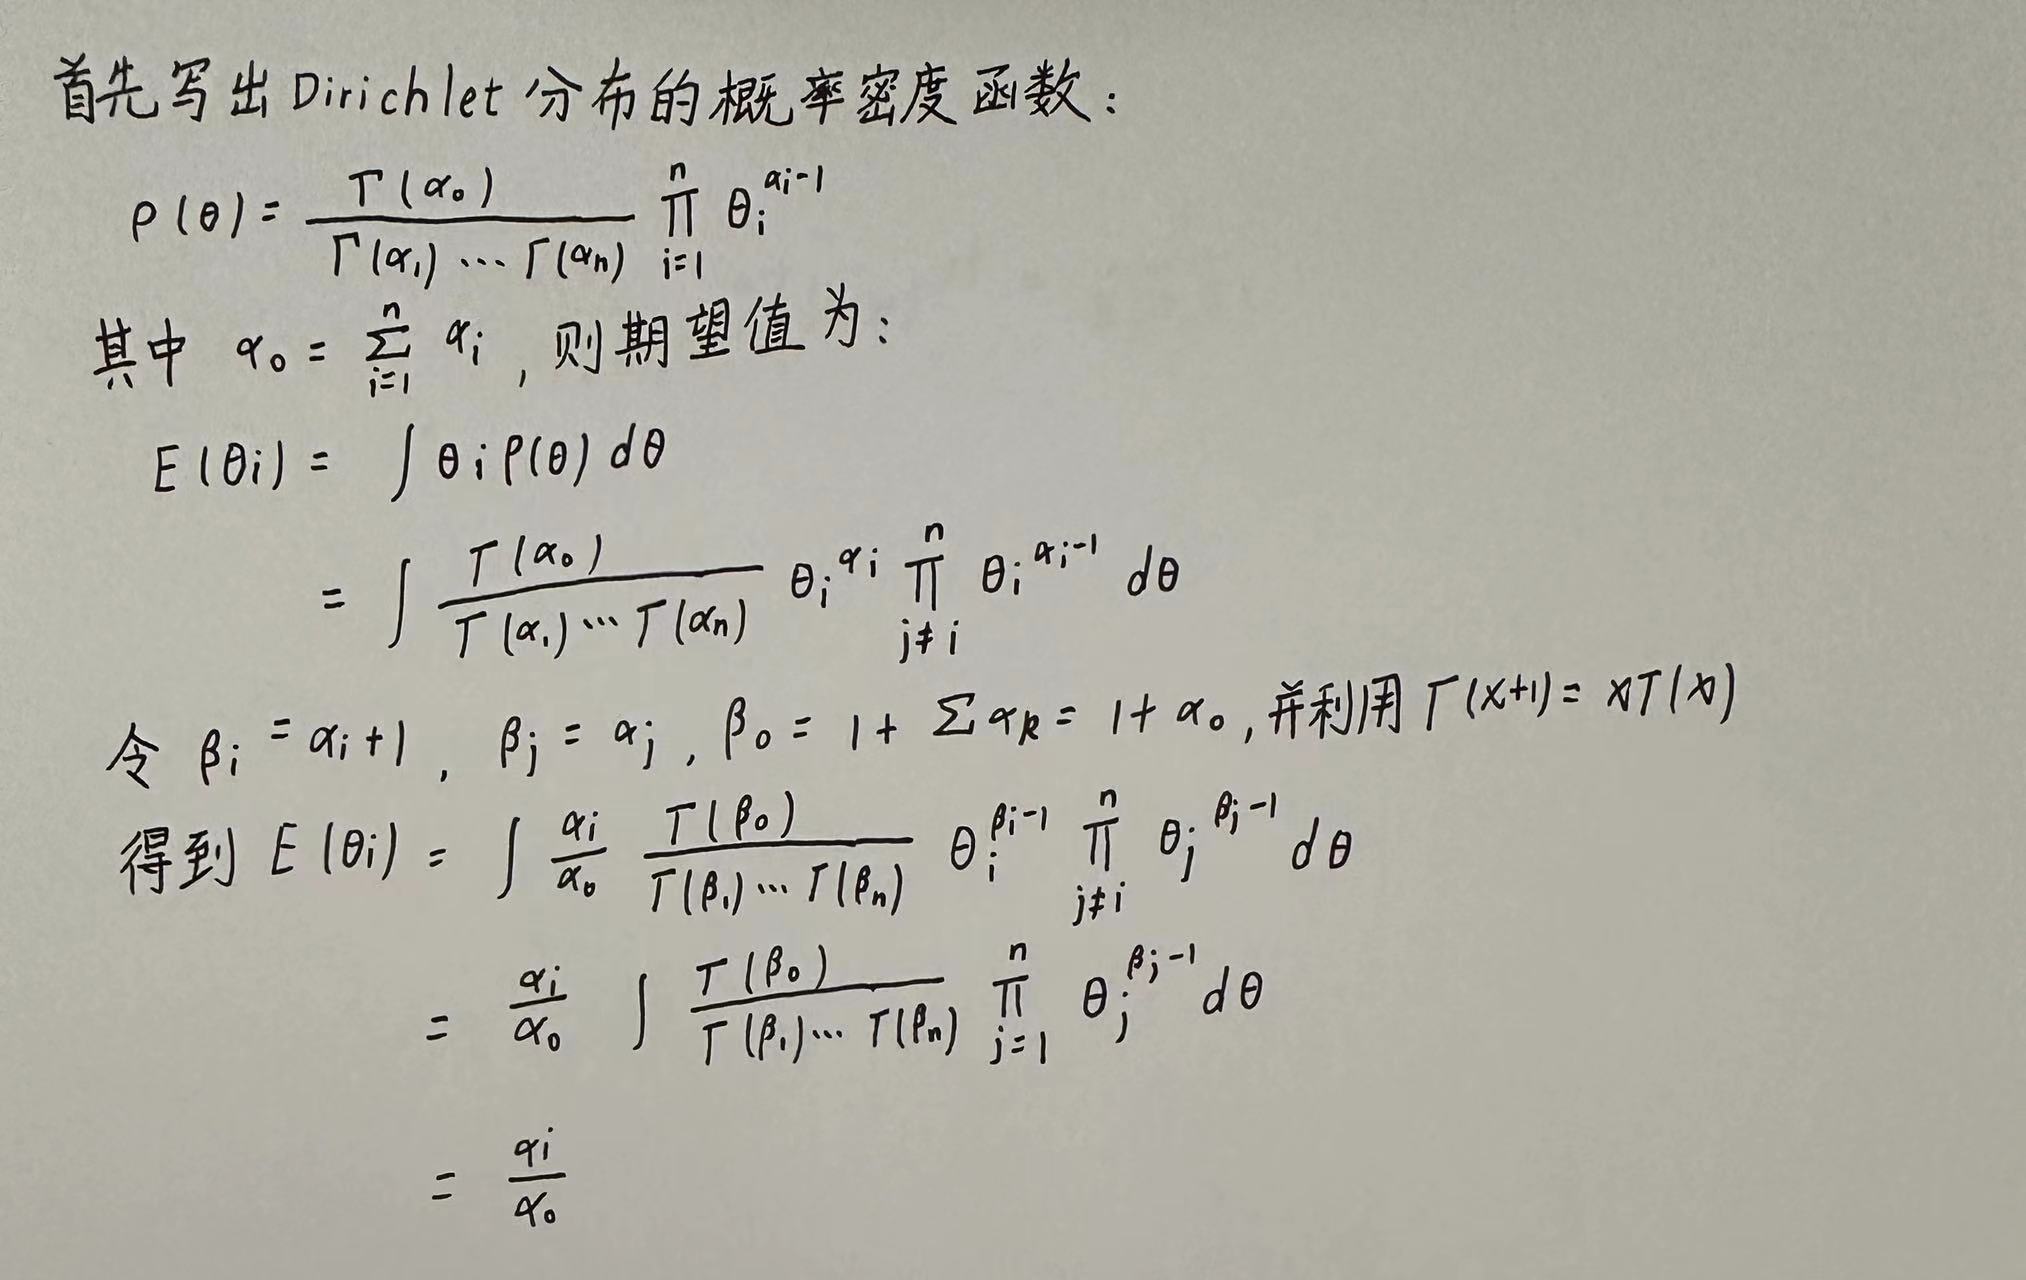 首先写出 Dirichlet 分布的概率密度函数：
p(θ) = \frac{Γ(α_0)}{Γ(α_1) ··· Γ(α_n)} \prod_{i=1}^{n} θ_i^{α_i-1}
其中 α_0 = \sum_{i=1}^{n} α_i , 则期望值为：
E(θ_i) = ∫ θ_i p(θ) dθ
= ∫ \frac{Γ(α_0)}{Γ(α_1) ··· Γ(α_n)} θ_i^{α_i} \prod_{j≠i}^{n} θ_i^{α_i-1} dθ
令 β_i = α_i+1 , β_j = α_j , β_0 = 1 + Σ α_k = 1 + α_0 , 并利用 Γ(x+1) = xΓ(x)
得到 E(θ_i) = ∫ \frac{α_i}{α_0} \frac{Γ(β_0)}{Γ(β_1) ··· Γ(β_n)} θ_i^{β_i-1} \prod_{j≠i}^{n} θ_j^{β_j-1} dθ
= \frac{α_i}{α_0} ∫ \frac{Γ(β_0)}{Γ(β_1) ··· Γ(β_n)} \prod_{j=1}^{n} θ_j^{β_j-1} dθ
= \frac{α_i}{α_0}